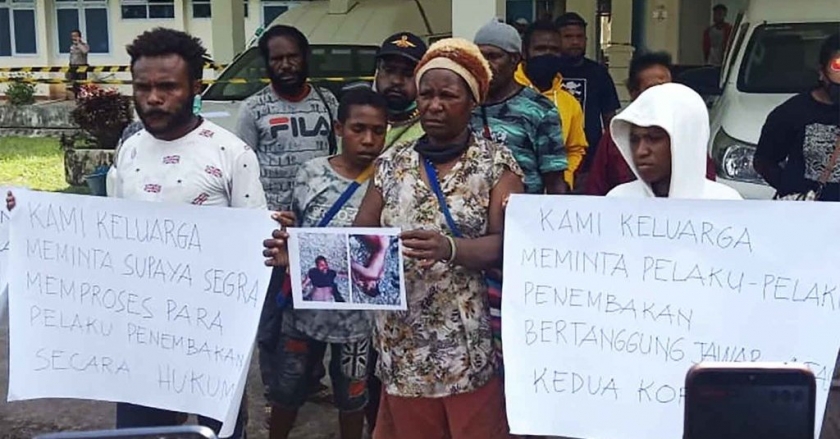 FILA
KAMI KELUARGA
MEMINTA SUPAYA SEGRA
MEMPROSES PARA
PELAKU PENEMBAKAN
SECARA HUKUM
KAMI KELUARGA
MEMINTA PELAKU-PELAK
PENEMBAKAN
BERTANGGUNG JAWAB
KEDUA KOR